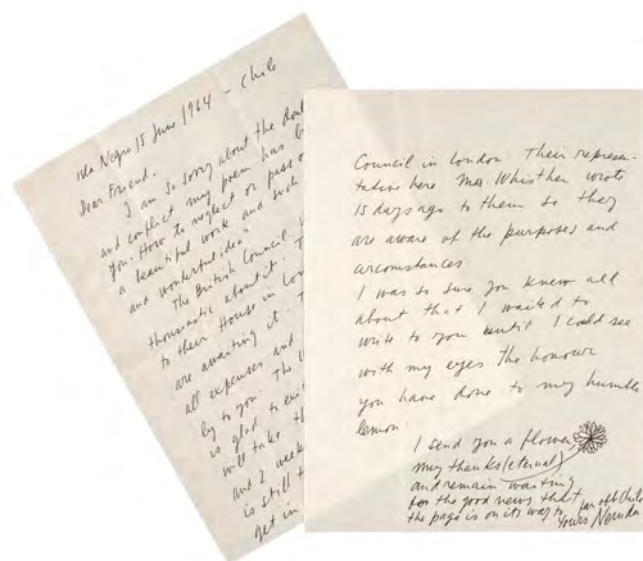 Isla Negra 15 June 1964 - Chile
Dear Friend.
I am so sorry about the
and conflict my poem has
you. How to neglect or pass
a beautiful work and such
and wonderful idea?
The British Council
thousiastic about it.
to their House in
are awaiting it.
all expenses and
by to you. The
is glad to
will take
and 2 week
is still
get in
Council in London. Their represen-
tative here Mr. Whisther wrote
15 days ago to them so they
are aware of the purposes and
circumstances
I was so sure you knew all
about that I waited to
write to you until I could see
with my eyes the honour
you have done to my humble
lemon.
I send you a flower,
my thanks (eternal)
and remain waiting
for the good news that
the page is on its way to far off Chile
Yours Neruda